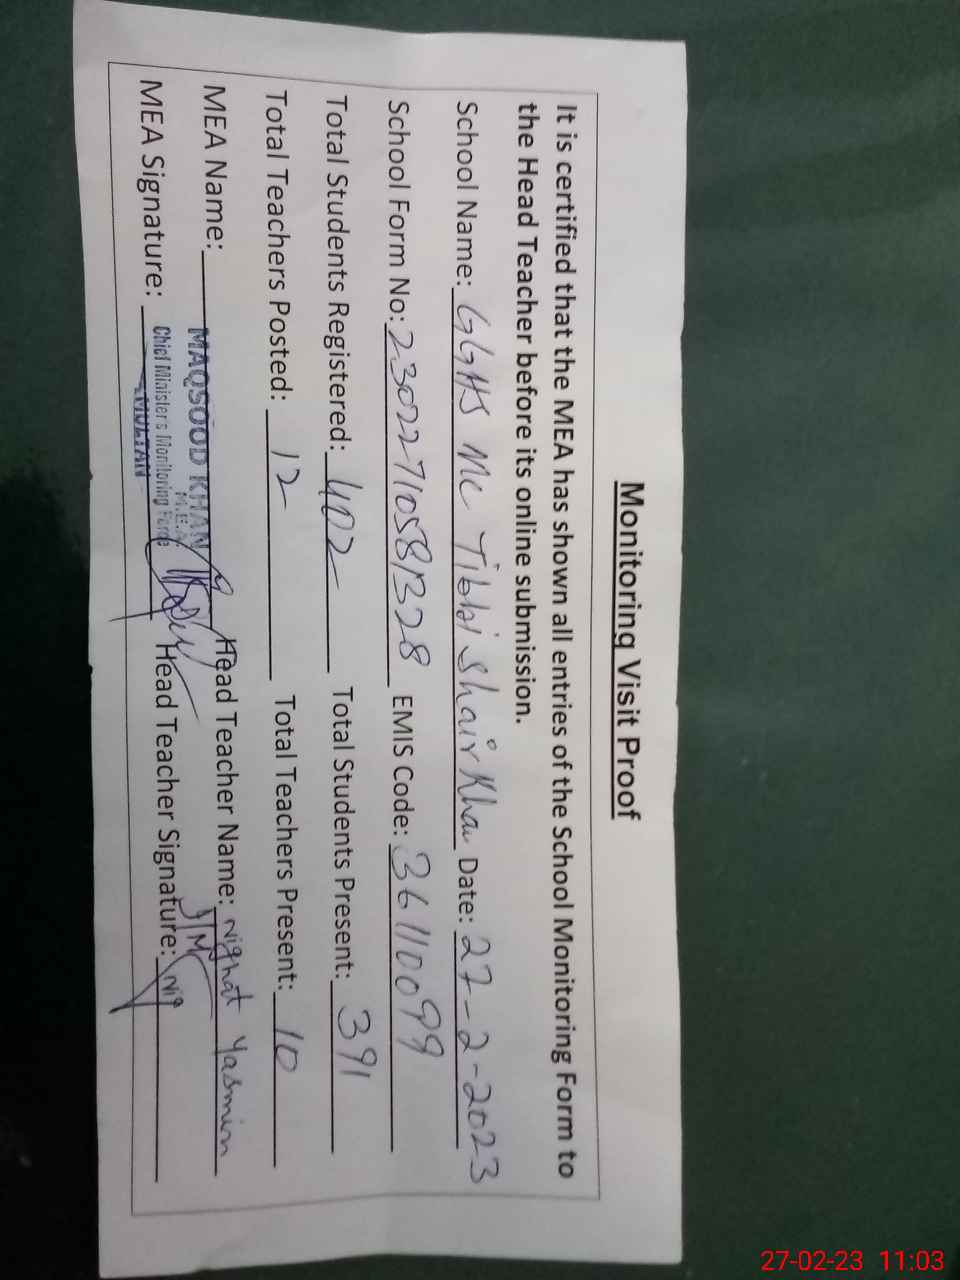 Monitoring Visit Proof
It is certified that the MEA has shown all entries of the School Monitoring Form to
the Head Teacher before its online submission.
School Name: GGHS MC Tibbi Shair Khan Date: 27-2-2023
School Form No: 23022710581328 EMIS Code: 36110099
Total Students Registered: 402 Total Students Present: 391
Total Teachers Posted: 12 Total Teachers Present: 10
MEA Name: MAQSOOD KHAN Head Teacher Name: Nighat Yasmin
M.E.A
Chief Minister's Monitoring Force
MULTAN
MEA Signature: Head Teacher Signature:
27-02-23 11:03